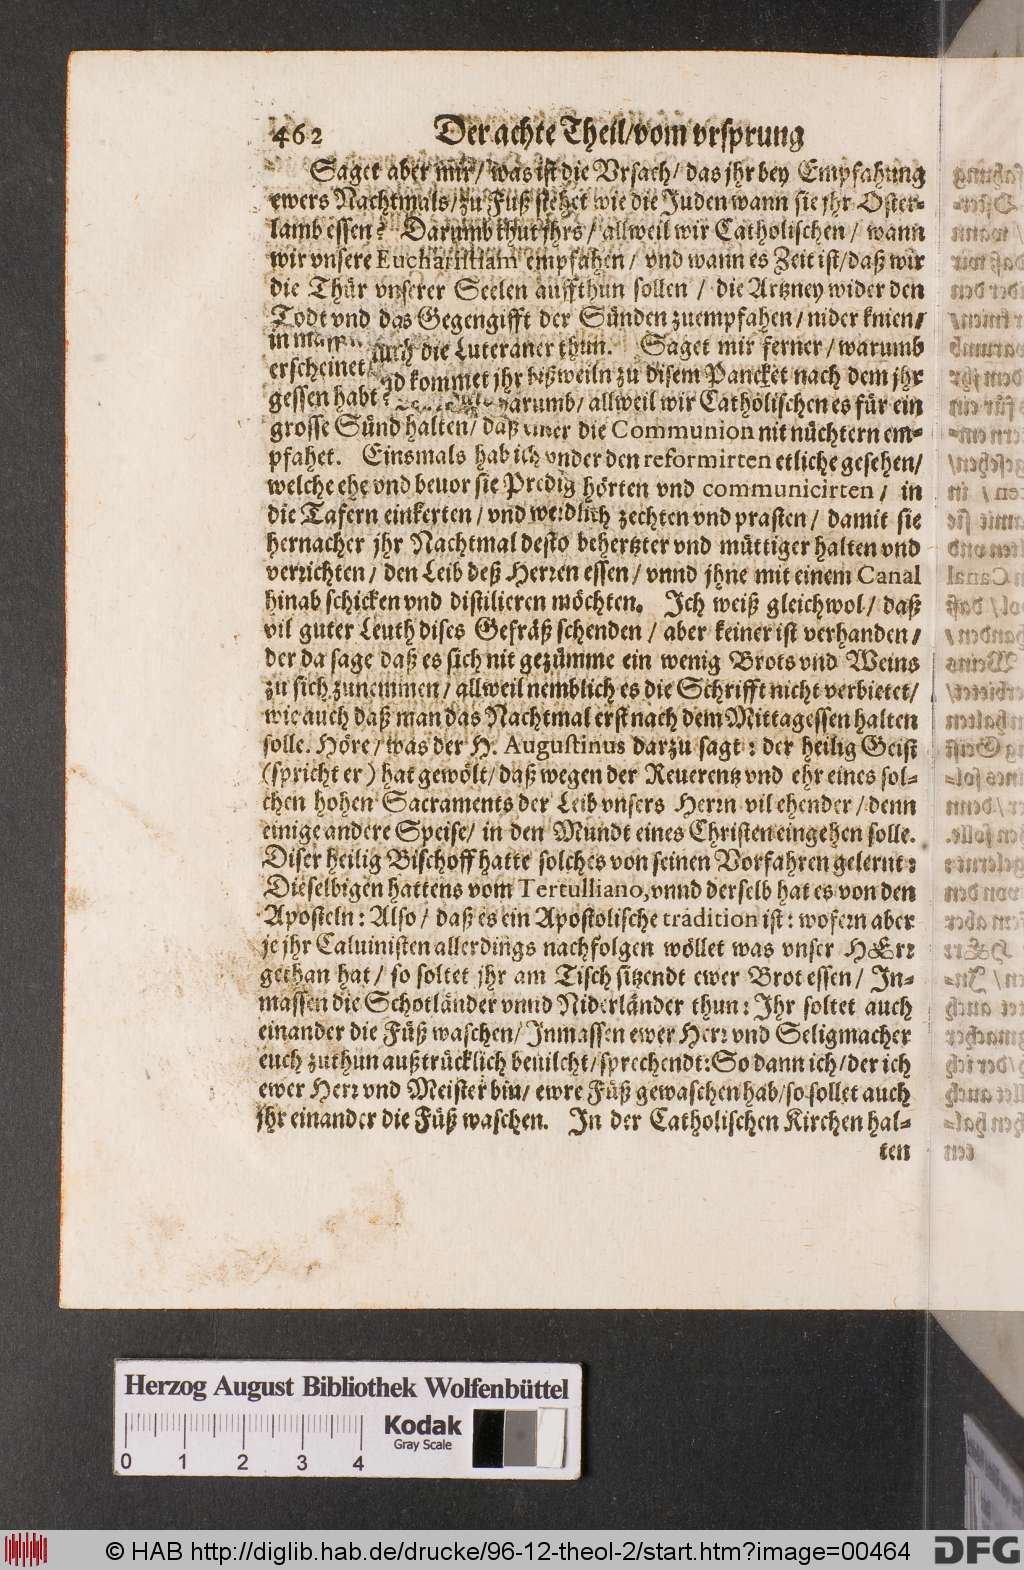 462 Der achte Theil/vom vrsprung
Saget aber mir/ was ist die Vrsach/ das jhr bey Empfahung
ewers Nachtmals/ zu Fuß stehet wie die Juden wann sie jhr Oster-
lamb essen? Darumb thut jhrs/ allweil wir Catholischen/ wann
wir vnsere Eucharistiam empfahen/ vnd wann es Zeit ist/ daß wir
die Thür vnserer Seelen auffthun sollen / die Artzney wider den
Todt vnd das Gegengifft der Sünden zuempfahen/ nider knien/
in auch die Luteraner thun. Saget mir ferner/ warumb
erscheinet kommet jhr bißweiln zu disem Pancket nach dem jhr
gessen habt? darumb/ allweil wir Catholischen es für ein
grosse Sünd halten/ daß einer die Communion nit nüchtern em-
pfahet. Einsmals hab ich vnder den reformirten etliche gesehen/
welche ehe vnd beuor sie Predig hörten vnd communicirten / in
die Tafern einkerten/ vnd weidlich zechten vnd prasten/ damit sie
hernacher jhr Nachtmal desto behertzter vnd müttiger halten vnd
verrichten/ den Leib deß Herren essen/ vnnd jhne mit einem Canal
hinab schicken vnd distilieren möchten. Ich weiß gleichwol/ daß
vil guter Leuth dises Gefräß schenden / aber keiner ist verhanden/
der da sage daß es sich nit gezümme ein wenig Brots vnd Weins
zu sich zunemmen/ allweil nemblich es die Schrifft nicht verbietet/
wie auch daß man das Nachtmal erst nach dem Mittagessen halten
solle. Höre/ was der H. Augustinus darzu sagt: der heilig Geist
(spricht er) hat gewölt/ daß wegen der Reuerentz vnd ehr eines sol-
chen hohen Sacraments der Leib vnsers Herrn vil ehender / denn
einige andere Speise/ in den Mundt eines Christen eingehen solle.
Diser heilig Bischoff hatte solches von seinen Vorfahren gelernt:
Dieselbigen hattens vom Tertulliano, vnnd derselb hat es von den
Aposteln: Also/ daß es ein Apostolische tradition ist: wofern aber
je jhr Caluinisten allerdings nachfolgen wöllet was vnser HErr
gethan hat/ so soltet jhr am Tisch sitzendt ewer Brot essen/ In-
massen die Schotländer vnnd Niderländer thun: Ihr soltet auch
einander die Füß waschen/ Inmassen ewer Herr vnd Seligmacher
euch zuthun außtrücklich beuilcht/ sprechendt: So dann ich/ der ich
ewer Herr vnd Meister bin/ ewre Füß gewaschen hab/ so sollet auch
jhr einander die Füß waschen. In der Catholischen Kirchen hal-
ten
Herzog August Bibliothek Wolfenbüttel
Kodak
Gray Scale
0 1 2 3 4
© HAB http://diglib.hab.de/drucke/96-12-theol-2/start.htm?image=00464
DFG